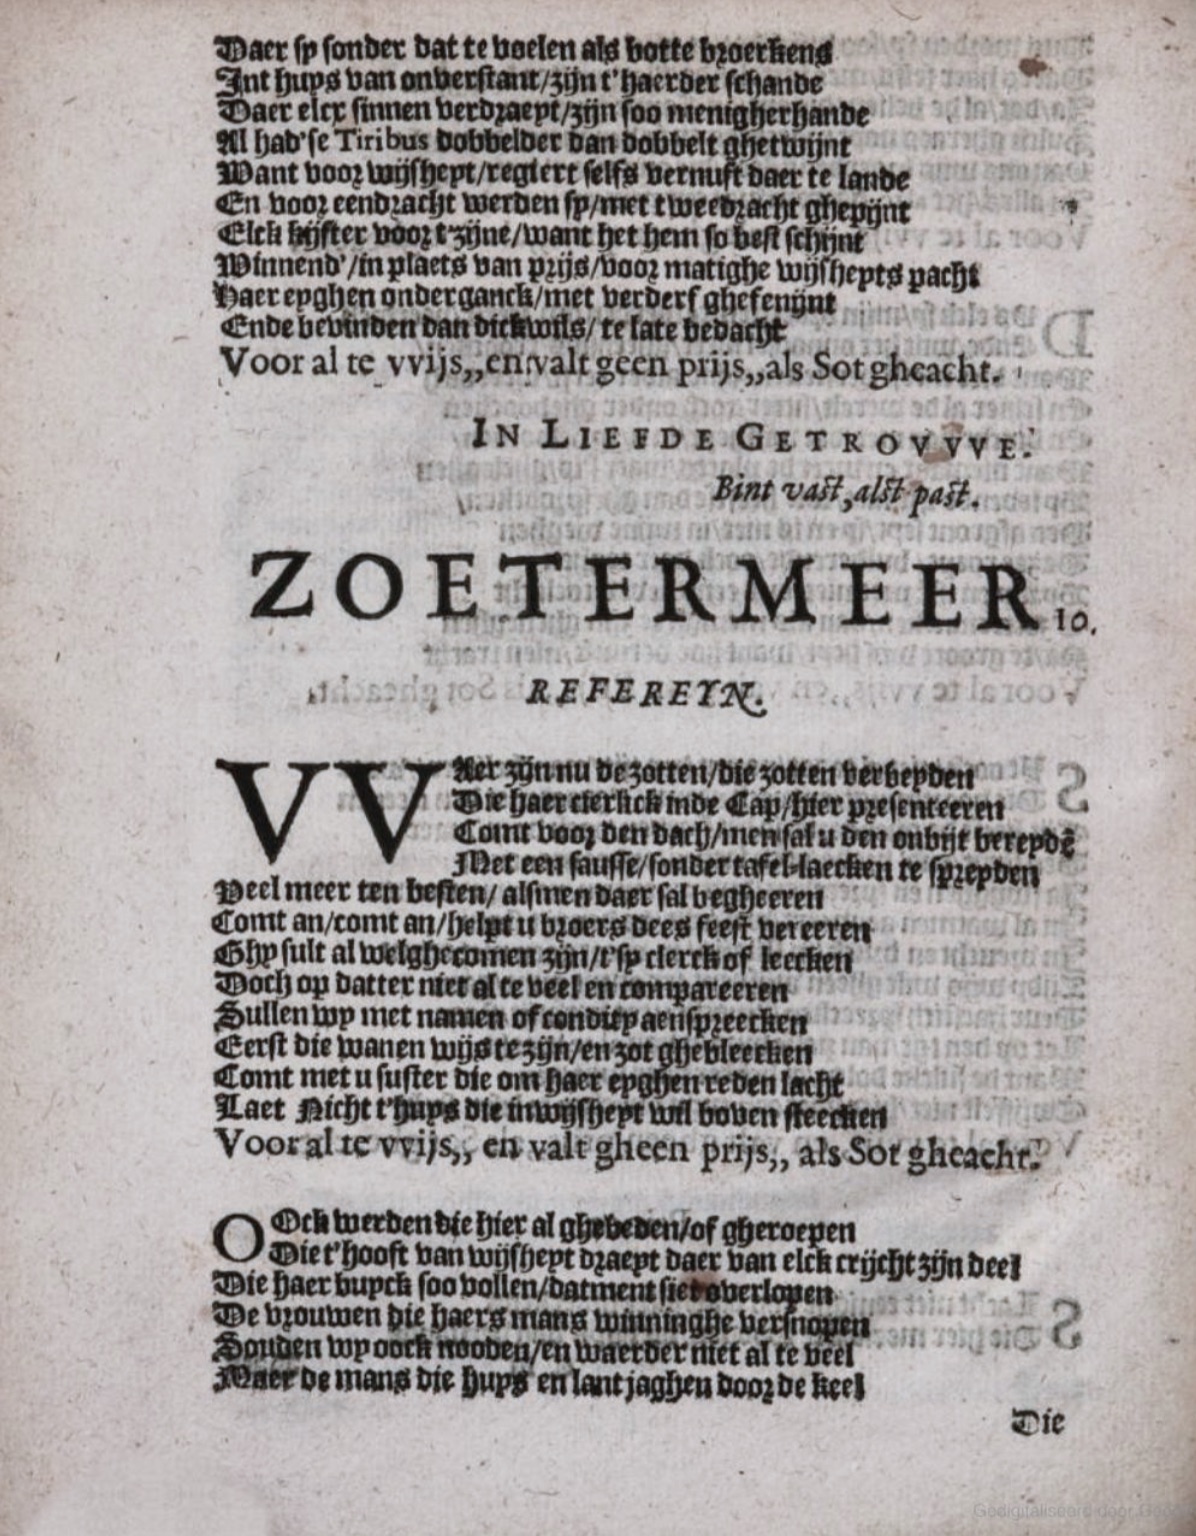 Daer sy sonder dat te voelen als botte broerkens
Int huys van onverstant/zijn t'haerder schande
Daer elcx sinnen verdraeyt/zijn soo menigherhande
Al had'se Tiribus dobbelder dan dobbelt ghetwijnt
Want voor wijsheyt/regiert selfs vernuft daer te lande
En voor eendracht werden sy/met tweedracht ghepijnt
Elck kijfter voor t'zijne/want het hem so best schijnt
Winnend'/in plaets van prijs/voor matighe wijsheyts pacht
Haer eyghen onderganck/met verderf ghefenijnt
Ende bevinden dan dickwils/ te late bedacht
Voor al te vvijs,,en valt geen prijs,,als Sot gheacht.
IN LIEFDE GETROVVVE.
Bint vast, alst past.
ZOETERMEER 10.
REFEREYN.
VVAer zijn nu de zotten/die zotten verbeyden
Die haer cierlick inde Cap/hier presenteeren
Comt voor den dach/men sal u den onbijt bereydẽ
Met een sausse/sonder tafel-laecken te spreyden
Veel meer ten besten/ alsmen daer sal begheeren
Comt an/comt an/helpt u broers dees feest vereeren
Ghy sult al welghecomen zijn/t'sy clerck of leecken
Doch op datter niet al te veel en compareeren
Sullen wy met namen of condity aenspreecken
Eerst die wanen wijs te zijn/en zot ghebleecken
Comt met u suster die om haer eyghen reden lacht
Laet Nicht t'huys die in wijsheyt wil boven steecken
Voor al te vvijs,, en valt gheen prijs,, als Sot gheacht.
OOck werden die hier al ghebeden/of gheroepen
Die t'hooft van wijsheyt draeyt daer van elck crijcht zijn deel
Die haer buyck soo vollen/datment siet overlopen
De vrouwen die haers mans winninghe versnopen
Souden wy oock nooden/en waerder niet al te veel
Maer de mans die huys en lant jaghen door de keel
Die